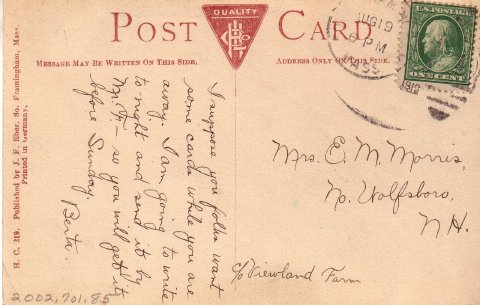 POST CARD
QUALITY
MESSAGE MAY BE WRITTEN ON THIS SIDE.
ADDRESS ONLY ON THIS SIDE.
AUG 19
6 PM
MASS.
1910
U.S. POSTAGE
ONE CENT
I suppose you folks want
some cards while you are
away. I am going to write
to-night and send it by
Mr. F. - so you will get it
before Sunday.
Berta.
Mrs. E. M. Morris,
No. Wolfsboro,
N.H.
c/o Viewland Farm
H. C. 219. Published by J. F. Eber, So. Framingham, Mass.
Printed in Germany.
2002.701.85